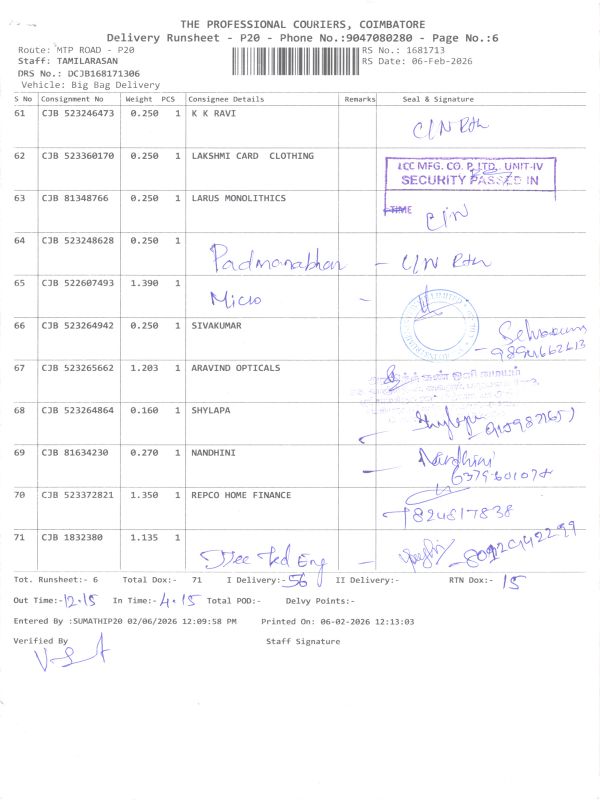 THE PROFESSIONAL COURIERS, COIMBATORE
Delivery Runsheet - P20 - Phone No.:9047080280 - Page No.:6
Route: MTP ROAD - P20 RS No.: 1681713
Staff: TAMILARASAN RS Date: 06-Feb-2026
DRS No.: DCJB168171306
Vehicle: Big Bag Delivery
S No Consignment No Weight PCS Consignee Details Remarks Seal & Signature
61 CJB 523246473 0.250 1 K K RAVI
C/N Rth
62 CJB 523360170 0.250 1 LAKSHMI CARD CLOTHING
LCC MFG. CO. P. LTD., UNIT-IV
SECURITY PASSED IN
63 CJB 81348766 0.250 1 LARUS MONOLITHICS
TIME
C/N
64 CJB 523248628 0.250 1
Padmanabhan - C/N Rth
65 CJB 522607493 1.390 1
Micro -
66 CJB 523264942 0.250 1 SIVAKUMAR
67 CJB 523265662 1.203 1 ARAVIND OPTICALS
68 CJB 523264864 0.160 1 SHYLAPA
69 CJB 81634230 0.270 1 NANDHINI
Nandhini
70 CJB 523372821 1.350 1 REPCO HOME FINANCE
7824817838
71 CJB 1832380 1.135 1
Tot. Runsheet:- 6 Total Dox:- 71 I Delivery:- 56 II Delivery:- RTN Dox:- 15
Out Time:- 12.15 In Time:- 4.15 Total POD:- Delvy Points:-
Entered By :SUMATHIP20 02/06/2026 12:09:58 PM Printed On: 06-02-2026 12:13:03
Verified By Staff Signature